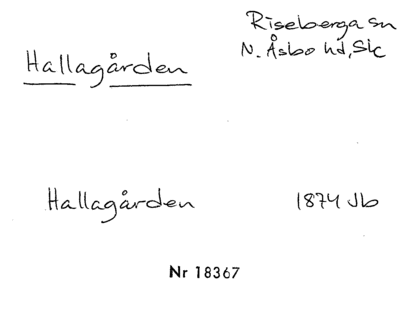 Riseberga sn
N. Åsbo hd, Sk
Hallagården
Hallagården 1874 Jb
Nr 18367